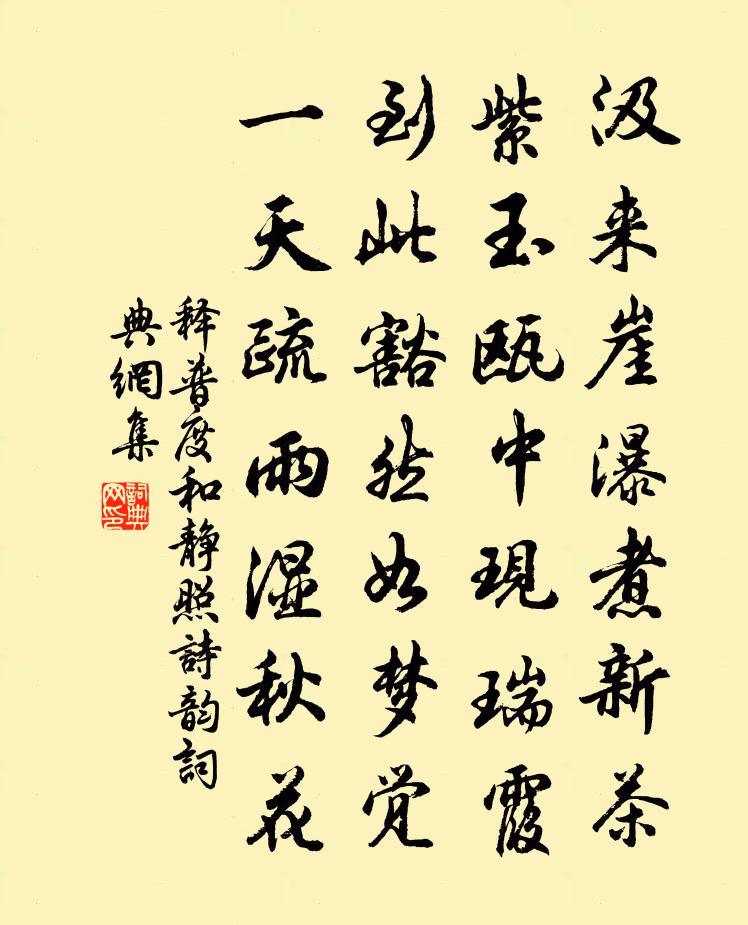 汲来崖瀑煮新茶
紫玉瓯中現瑞霞
到此豁然如梦觉
一天疏雨湿秋花
释普度和静照詩韵詞
典網集
詞典网印